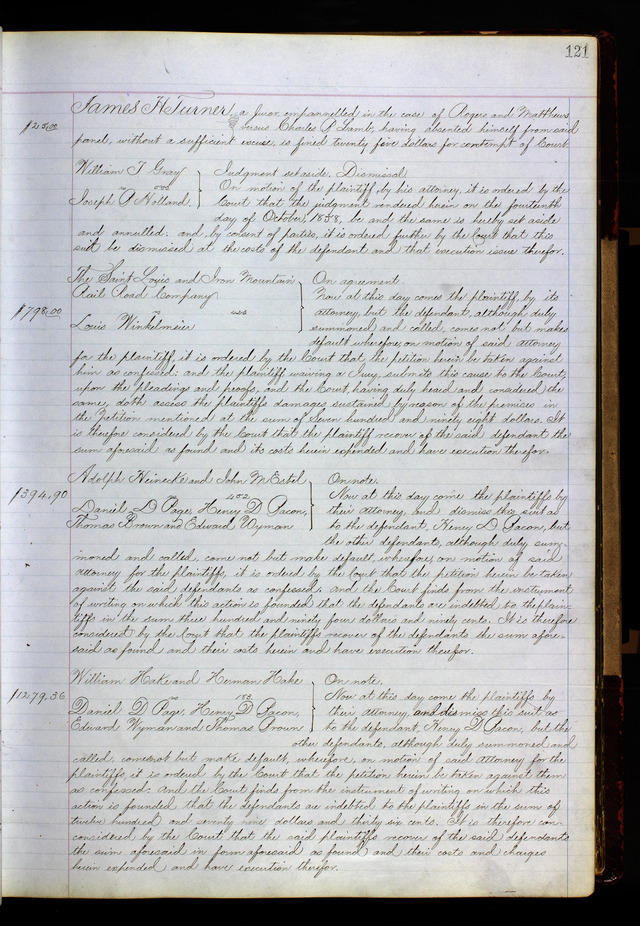 121
James H Turner, a Juror empannelled in the case of Rogers and Matthews
$25.00 versus Charles P Lamb, having absented himself from said
panel, without a sufficient excuse, is fined twenty five dollars for contempt of Court.
William T Gray Judgment set aside. Dismissal
vs On motion of the plaintiff, by his attorney, it is ordered by the
Joseph A Holland. Court that the judgment rendered herein on the fourteenth
day of October, 1858, be and the same is hereby set aside
and annulled: and, by consent of parties, it is ordered further by the Court that this
suit be dismissed at the costs of the defendant and that execution issue therefor.
The Saint Louis and Iron Mountain On agreement
Rail Road Company Now at this day comes the plaintiff, by its
$798.00 vs attorney, but the defendant, although duly
Louis Winkelmeier summoned and called, comes not but makes
default, wherefore, on motion of said attorney
for the plaintiff, it is ordered by the Court that the petition herein be taken against
him as confessed: and the plaintiff waiving a Jury, submits this cause to the Court,
upon the pleadings and proofs, and the Court, having duly heard and considered the
same, doth assess the plaintiffs damages sustained by reason of the premises in
the Petition mentioned at the sum of Seven hundred and ninety eight dollars. It
is therefore considered by the Court that the plaintiff recover of the said defendant the
sum aforesaid as found and its costs herein expended and have execution therefor.
Adolph Heinecke and John M Estel On note.
$394.90 vs Now at this day come the plaintiffs by
Daniel D Page, Henry D Bacon, their attorney, and dismiss this suit as
Thomas Brown and Edward Wyman to the defendant, Henry D Bacon, but
the other defendants, although duly sum-
moned and called, come not but make default, wherefore, on motion of said
attorney for the plaintiffs, it is ordered by the Court that the petition herein be taken
against the said defendants as confessed: and the Court finds from the instrument
of writing on which this action is founded that the defendants are indebted to the plain-
tiffs in the sum three hundred and ninety four dollars and ninety cents. It is therefore
considered by the Court that the plaintiffs recover of the defendants the sum afore-
said as found and their costs herein and have execution therefor.
William Hake and Herman Hake On note.
$1279.36 vs Now at this day come the plaintiffs by
Daniel D Page, Henry D Bacon, their attorney, and dismiss this suit as
Edward Wyman and Thomas Brown to the defendant, Henry D Bacon, but the
other defendants, although duly summoned and
called, come not but make default, wherefore, on motion of said attorney for the
plaintiffs, it is ordered by the Court that the petition herein be taken against them
as confessed: And the Court finds from the instrument of writing on which this
action is founded that the defendants are indebted to the plaintiffs in the sum of
twelve hundred and seventy nine dollars and thirty six cents. It is therefore con-
considered by the Court that the said plaintiffs recover of the said defendants
the sum aforesaid in form aforesaid as found and their costs and charges
herein expended and have execution therefor.